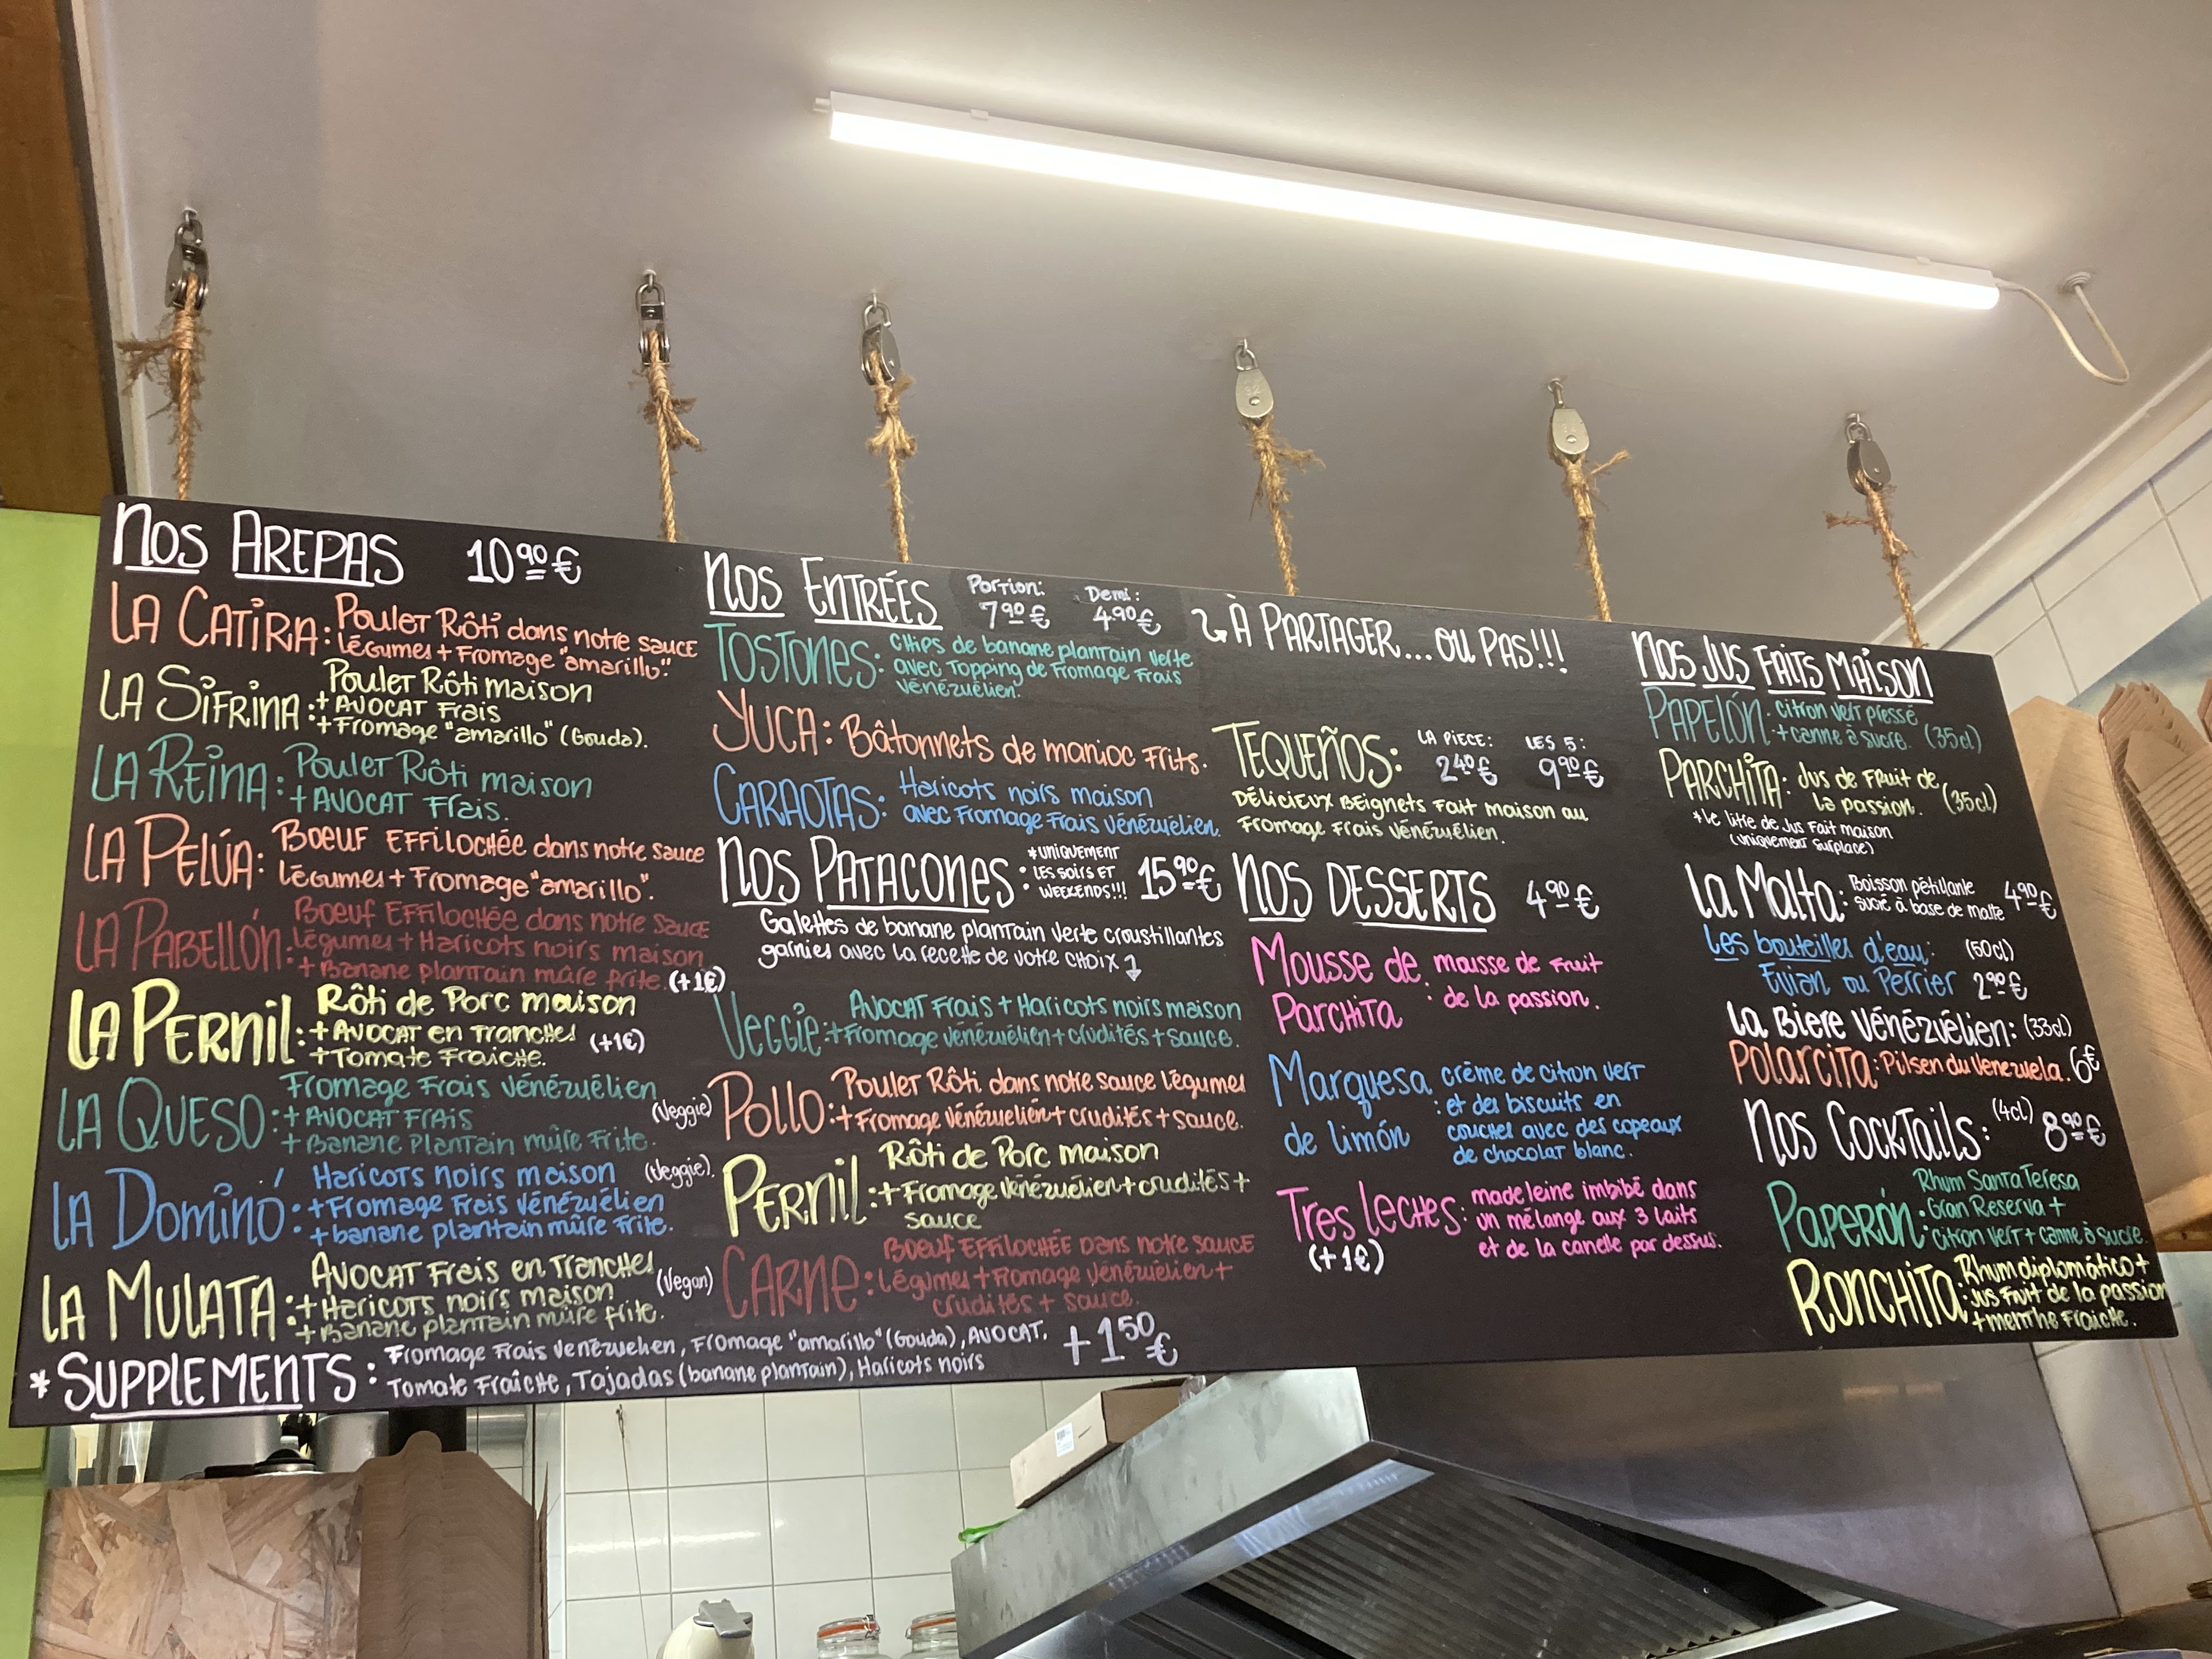 Nos AREPAS 10⁹⁰€
LA CATIRA: Poulet Rôti dans notre sauce
légumes + Fromage "amarillo".
LA SIFRINA: Poulet Rôti maison
+ AVOCAT Frais
+ Fromage "amarillo" (Gouda).
LA REINA: Poulet Rôti maison
+ AVOCAT Frais.
LA PELÚA: BOEUF EFFILOCHÉE dans notre sauce
légumes + Fromage "amarillo".
LA PABELLÓN: BOEUF EFFILOCHÉE dans notre sauce
légumes + Haricots noirs maison
+ Banane plantain mûre frite. (+1€)
LA PERNIL: Rôti de Porc maison
+ AVOCAT en Tranches (+1€)
+ Tomate Fraîche.
LA QUESO: Fromage Frais Vénézuélien
+ AVOCAT FRAIS (Veggie)
+ Banane Plantain mûre Frite.
LA DOMINÓ: Haricots noirs maison (Veggie).
+ Fromage Frais Vénézuélien
+ banane plantain mûre Frite.
LA MULATA: AVOCAT Frais en Tranches
+ Haricots noirs maison (Vegan)
+ Banane plantain mûre frite.
* SUPPLEMENTS: Fromage Frais Venezuelien, Fromage "amarillo" (Gouda), AVOCAT,
Tomate Fraîche, Tajadas (banane plantain), Haricots noirs + 1⁵⁰€
Nos ENTRÉES Portion: 7⁹⁰€ Demi: 4.⁹⁰€
TOSTONES: CHIPS de banane plantain verte
avec Topping de Fromage Frais
Vénézuélien.
YUCA: Bâtonnets de manioc Frits.
CARAOTAS: Haricots noirs maison
avec Fromage Frais Vénézuélien.
Nos PATACONES: *UNIQUEMENT
LES SOIRS ET
WEEKENDS!!! 15⁹⁰€
Galettes de banane plantain verte croustillantes
garnies avec la recette de votre choix
Veggie: AVOCAT Frais + Haricots noirs maison
+ Fromage vénézuélien + crudités + sauce.
POLLO: Poulet Rôti dans notre sauce légumes
+ Fromage Vénézuélien + crudités + sauce.
PERNIL: Rôti de Porc maison
+ Fromage Vénézuélien + crudités +
sauce
CARNE: BOEUF EFFILOCHÉE Dans notre SAUCE
légumes + Fromage Vénézuélien +
crudités + sauce.
À PARTAGER... OU PAS!!!
TEQUEÑOS: LA PIECE: 2⁴⁰€ LES 5: 9⁹⁰€
DÉLICIEUX BEIGNETS Fait maison au
Fromage Frais Vénézuélien.
NOS DESSERTS 4⁹⁰€
Mousse de Parchita: mousse de Fruit
de la passion.
Marquesa de limón: crème de citron vert
et des biscuits en
couches avec des copeaux
de chocolat blanc.
Tres leches: madeleine imbibé dans
un mélange aux 3 laits
et de la canelle par dessus.
(+1€)
NOS JUS FAITS MAISON
PAPELÓN: citron vert pressé
+ canne à sucre. (35cl)
PARCHITA: Jus de Fruit de
la passion. (35cl)
*le litre de Jus Fait maison
(uniquement surplace)
La Malta: Boisson pétillante
sucré à base de malte 4⁹⁰€
Les bouteilles d'eau: (50cl)
Evian ou Perrier 2⁹⁰€
La Biere Vénézuélien: (33cl)
Polarcita: Pilsen du Venezuela. 6€
Nos Cocktails: (4cl) 8⁹⁰€
PAPERÓN: Rhum Santa Teresa
Gran Reserva +
citron vert + canne à sucre.
RONCHITA: Rhum diplomático +
Jus Fruit de la passion
+ menthe Fraiche.